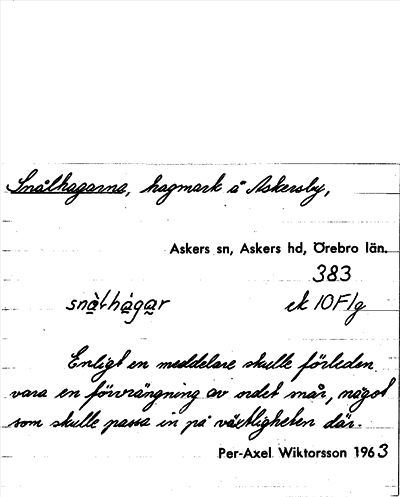 Snålhagarna, hagmark å Askersby,
Askers sn, Askers hd, Örebro län.
383
snålhågar ek 10F1g
Enligt en meddelare skulle förleden
vara en förvrängning av ordet snår, något
som skulle passa in på växtligheten där.
Per-Axel Wiktorsson 1963